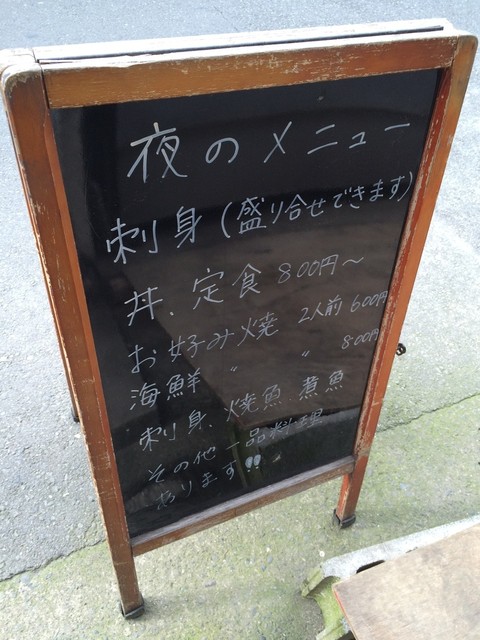 夜のメニュー
刺身(盛り合せできます)
丼、定食 800円〜
お好み焼 2人前 600円
海鮮 〃 〃 800円
刺身、焼魚、煮魚
その他一品料理
あります!!